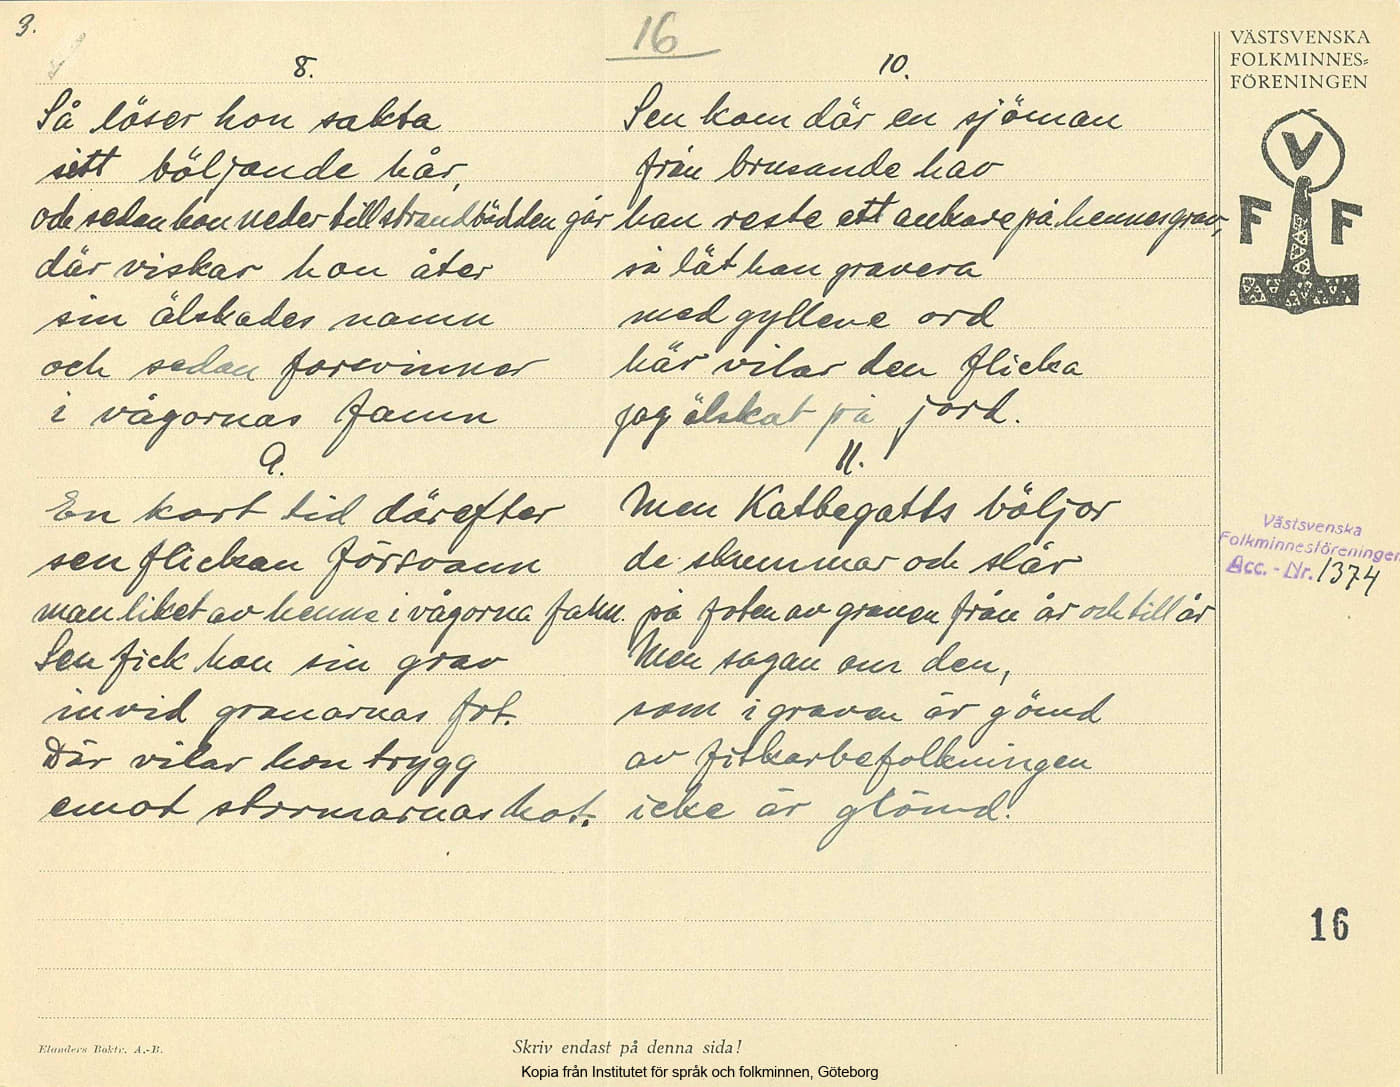 3.
16
8.
Så löser hon sakta
sitt böljande hår,
och sedan hon neder till strandbädden går
där viskar hon åter
sin älskades namn
och sedan forsvinner
i vågornas famn
9.
En kort tid därefter
sen flickan försvann
man liket av henne i vågorna fann.
Sen fick hon sin grav
invid granarnas fot.
Där vilar hon trygg
emot stormarnas hot.
10.
Sen kom där en sjöman
från brusande hav
han reste ett ankare på hennes grav,
så lät han gravera
med gyllene ord
här vilar den flicka
jag älskat på jord.
11.
Men Kattegatts böljor
de skummar och slår
på foten av graven från år och till år
Men sagan om den,
som i graven är gömd
av fiskarbefolkningen
icke är glömd.
VÄSTSVENSKA
FOLKMINNES=
FÖRENINGEN
V
F F
Västsvenska
Folkminnesföreningen
Acc. - Nr. 1374
16
Elanders Boktr. A.-B.
Skriv endast på denna sida!
Kopia från Institutet för språk och folkminnen, Göteborg